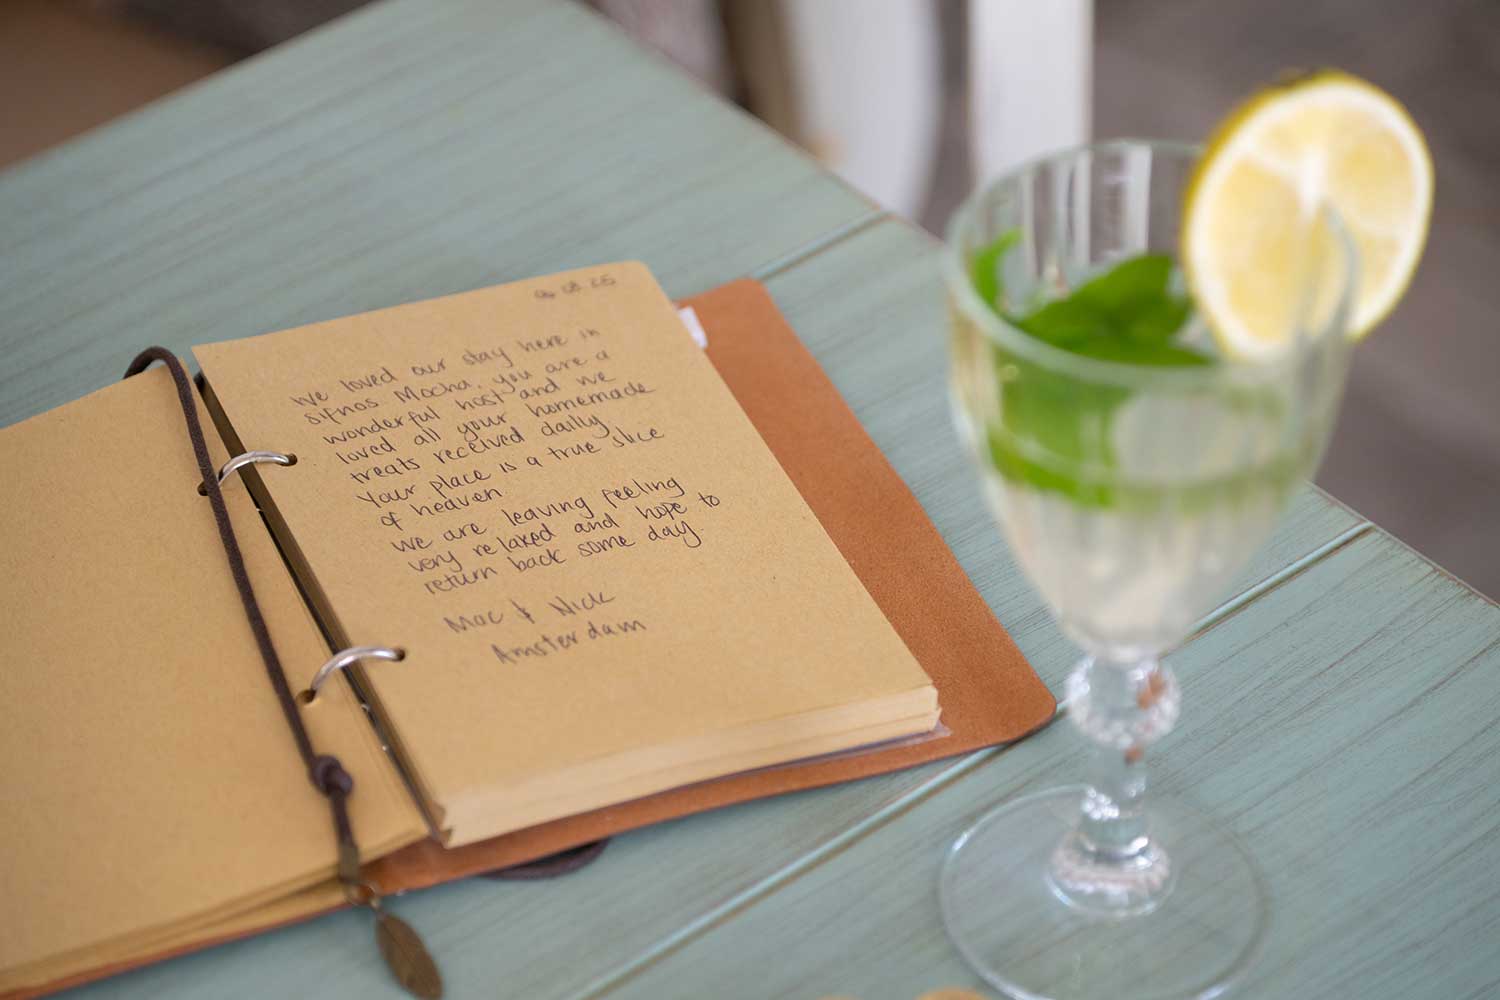 06 08 25
We loved our stay here in
Sifnos Mocha. you are a
wonderful host and we
loved all your homemade
treats received dailly
Your place is a true slice
of heaven
We are leaving feeling
very relaxed and hope to
return back some day.
Mac & Nick
Amsterdam